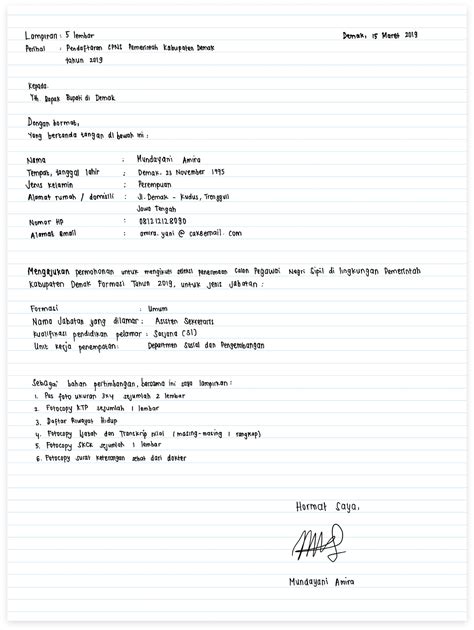 Lampiran : 5 lembar
Demak, 15 Maret 2019
Perihal : Pendaftaran CPNS Pemerintah Kabupaten Demak
tahun 2019
Kepada
Yth Bapak Bupati di Demak
Dengan hormat,
Yang bertanda tangan di bawah ini :
Nama : Mundayani Amira
Tempat, tanggal lahir : Demak, 23 November 1995
Jenis kelamin : Perempuan
Alamat rumah / domisili : Jl. Demak - Kudus, Trengguli
Jawa Tengah
Nomor HP : 081212128090
Alamat email : amira.yani @ cakeemail. com
Mengajukan permohonan untuk mengikuti seleksi penerimaan Calon Pegawai Negri Sipil di lingkungan Pemerintah
Kabupaten Demak Formasi Tahun 2019, untuk jenis Jabatan :
Formasi : Umum
Nama Jabatan yang dilamar : Asisten Sekretaris
Kualifikasi pendidikan pelamar : Sarjana (S1)
Unit kerja penempatan : Departmen Sosial dan Pengembangan
Sebagai bahan pertimbangan, bersama ini saya lampirkan :
1. Pas foto ukuran 3x4 sejumlah 2 lembar
2. Fotocopy KTP sejumlah 1 lembar
3. Daftar Riwayat Hidup
4. Fotocopy Ijazah dan Transkrip nilai (masing-masing 1 rangkap)
5. Fotocopy SKCK sejumlah 1 lembar
6. Fotocopy surat keterangan sehat dari dokter
Hormat Saya,
Mundayani Amira